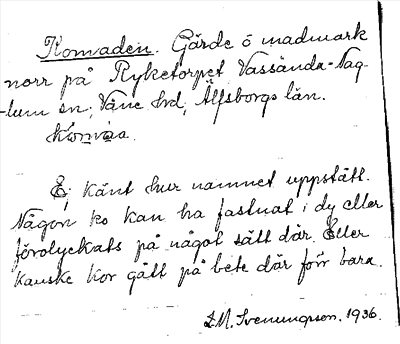 Komaden. Gärde ö madmark
norr på Ryketorpet Vassända-Nag-
-lum sn, Väne hd, Älfsborgs län.
Ej känt hur namnet uppstått.
Någon ko kan ha fastnat i dy eller
förolyckats på något sätt där. Eller
kanske kor gått på bete där förr bara.
L.M. Svenungsson. 1936.